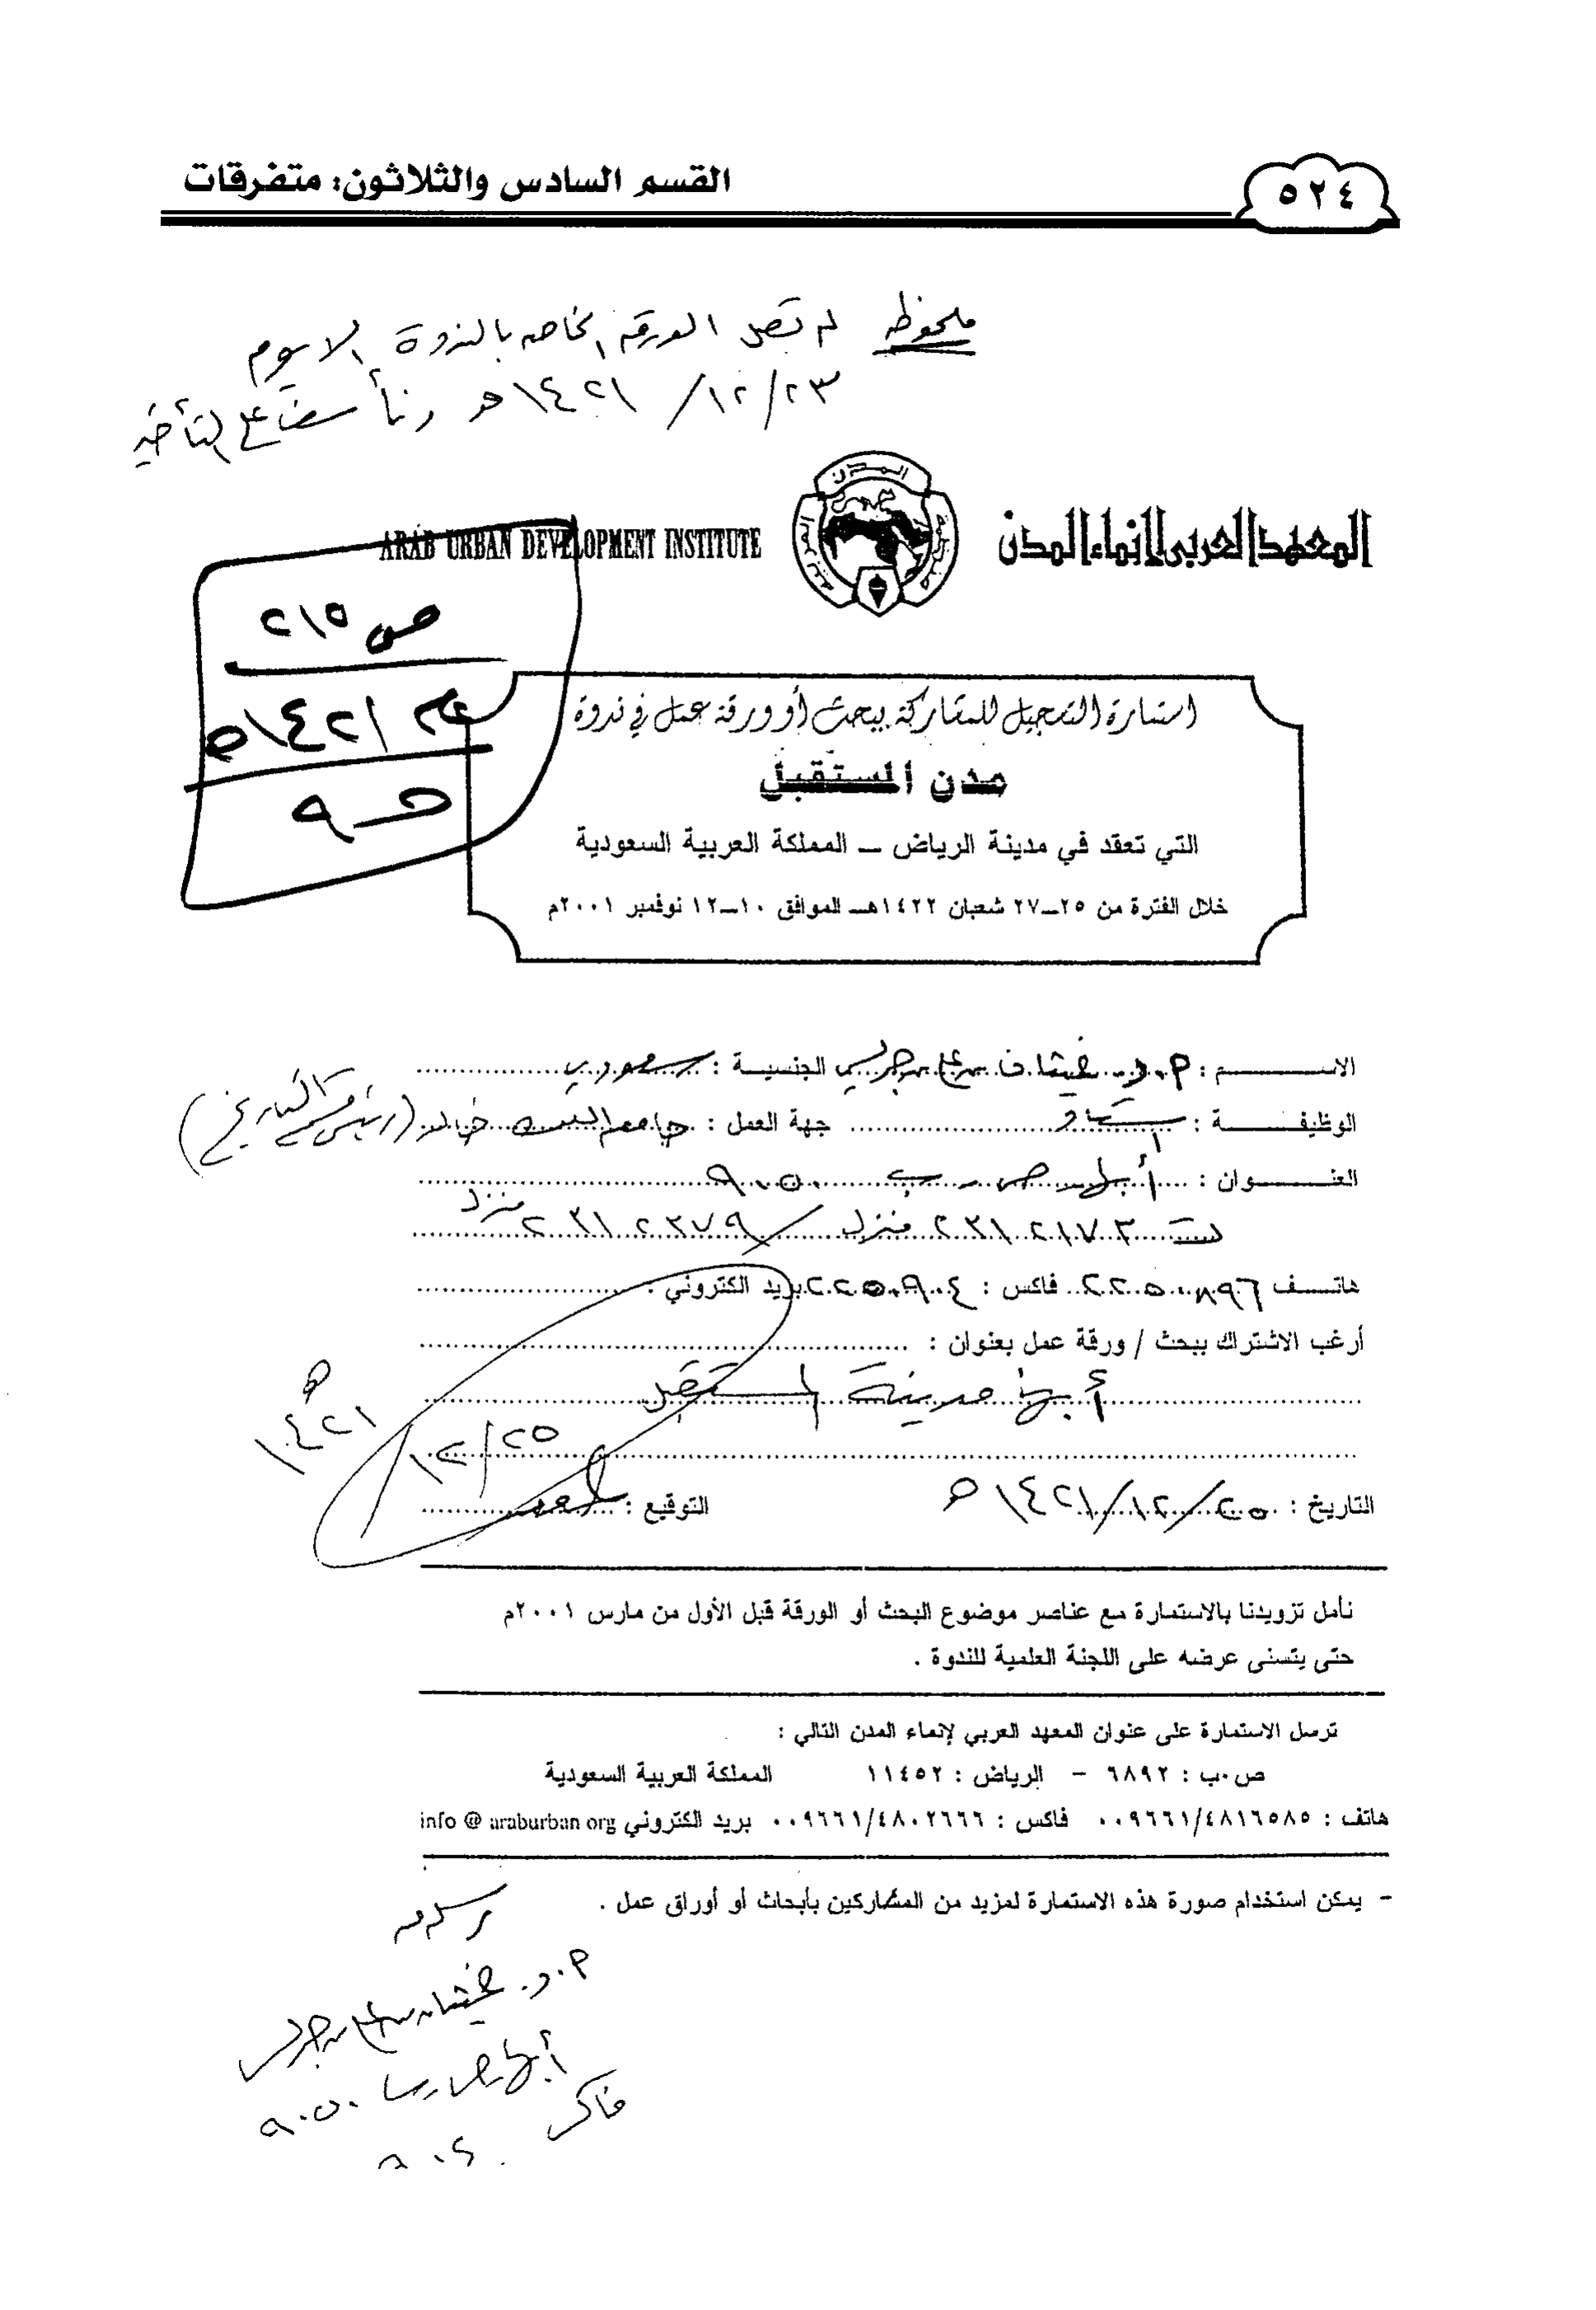 القسم السادس والثلاثون: متفرقات
٥٢٤
ملحوظه لم تصل الورقه الخاصه بالندوة الا يوم
٢٣/١٢/١٤٢١هـ ونأسف على التأخير
المعهد العربي لإنماء المدن
ARAB URBAN DEVELOPMENT INSTITUTE
ص ٢١٥
عام ١٤٢١ه
استمارة التسجيل للمشاركة ببحث أو ورقة عمل في ندوة
مدن المستقبل
التي تعقد في مدينة الرياض ــ المملكة العربية السعودية
خلال الفترة من ٢٥ــ٢٧ شعبان ١٤٢٢هــ الموافق ١٠ــ١٢ نوفمبر ٢٠٠١م
الاســـــــم : م.د. غيثان بن علي بن جريس الجنسيــة : سعودي
الوظيفــــــة : أستاذ جهة العمل : جامعة الملك خالد (رئيس قسم التاريخ)
العنـــــوان : أبها ص.ب ٩٠٥٠
ت ٢٣١٠٢١٧٠٣ منزل / ٢٣١٠٢٣٧٩ منزل
هاتــف فاكس : بريد الكتروني :
أرغب الاشتراك ببحث / ورقة عمل بعنوان :
أبها مدينة المستقبل
التاريخ : ٢٥/١٢/١٤٢١ه التوقيع :
٢٥/١٢/١٤٢١ه
نأمل تزويدنا بالاستمارة مع عناصر موضوع البحث أو الورقة قبل الأول من مارس ٢٠٠١م
حتى يتسنى عرضه على اللجنة العلمية للندوة .
ترسل الاستمارة على عنوان المعهد العربي لإنماء المدن التالي :
ص.ب : ٦٨٩٢ - الرياض : ١١٤٥٢ المملكة العربية السعودية
هاتف : ٠٠٩٦٦١/٤٨١٦٥٨٥ فاكس : ٠٠٩٦٦١/٤٨٠٢٦٦٦ بريد الكتروني info @ araburban org
- يمكن استخدام صورة هذه الاستمارة لمزيد من المشاركين بأبحاث أو أوراق عمل .
م.د. غيثان بن علي بن جريس
أبها ص.ب ٩٠٥٠
فاكس